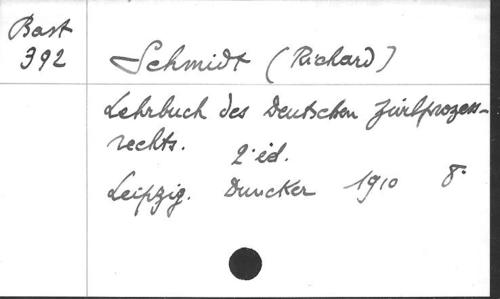 Bast
392
Schmidt (Richard)
Lehrbuch des Deutschen Zivilprozess-
rechts. 2e éd.
Leipzig. Duncker 1910 8°